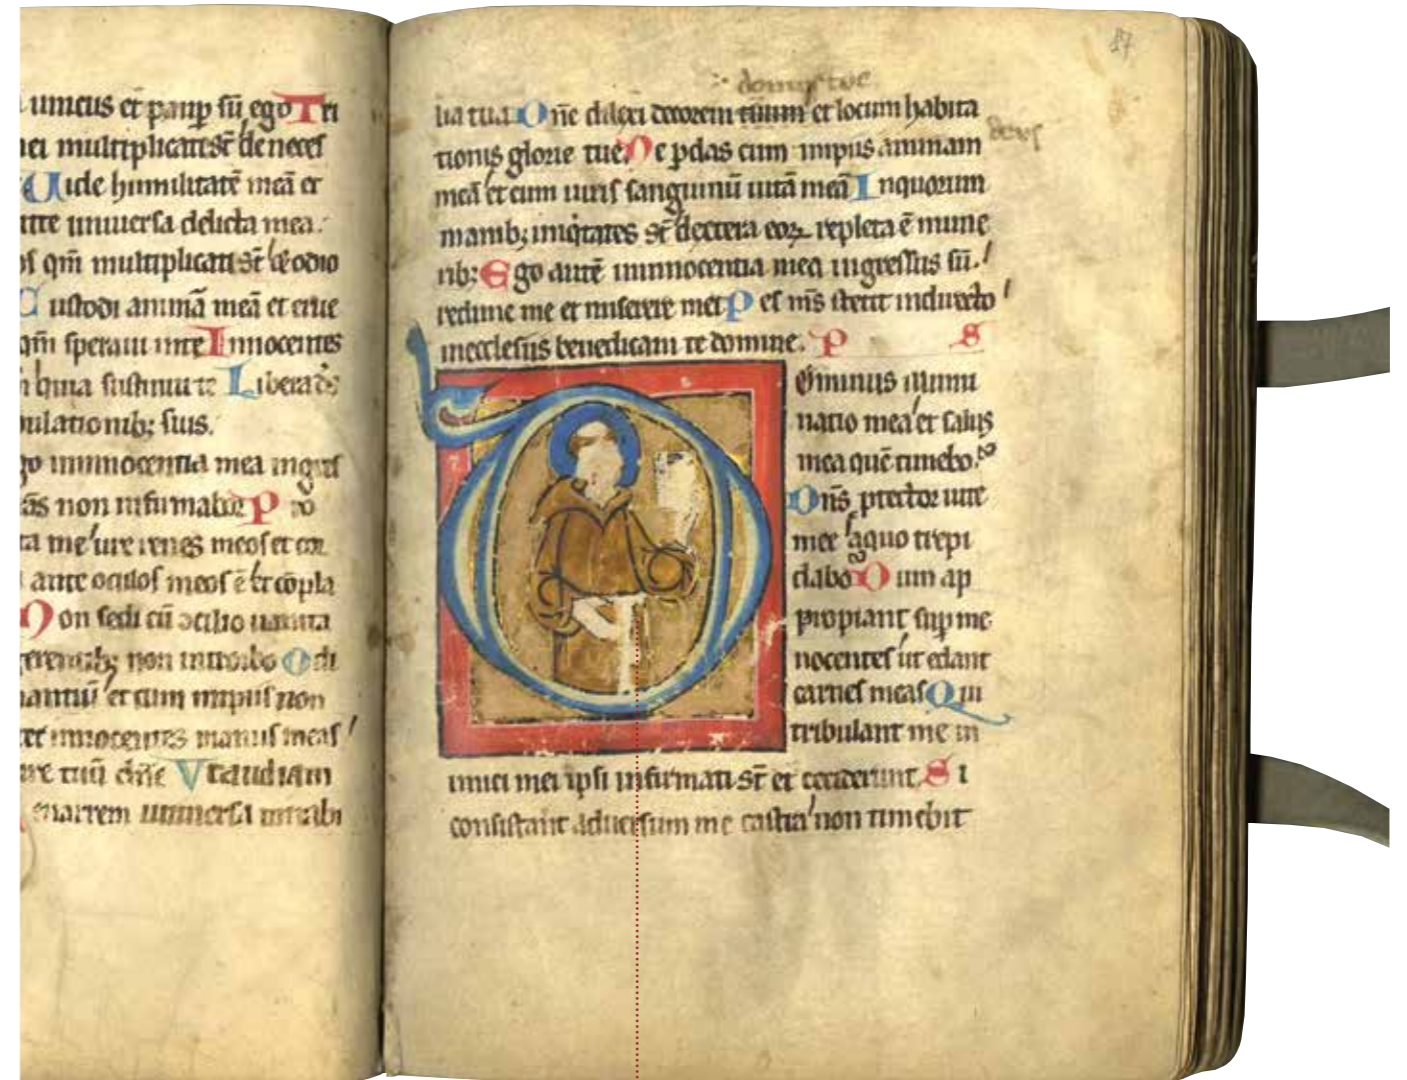 unicus et paup sū ego Tri
nei multiplicate sr̄ de neces
Uide humilitatē meā et
itte uniuersa delicta mea.
os qm̄ multiplicati sr̄ et odio
Custodi animā meā et erue
qm̄ speraui inte Innocentes
sustinui te Libera ds
bulationib; suis.
go inninocentia mea ingres
ās non infirmabor P
ta me ure renes meos et cor
ante oculos meos ē et cōpla
Non sedi cū ↄcilio uanita
gerentib; non introibo Odi
nantiū et cum impiis non
ter innocentes manus meas
re tuū dn̄e Vt audiam
enarrem uniuersa mirabi
17
domus tue
lia tua Dn̄e dilexi decorem tuum et locum habita
tionis glorie tue. Ne pdas cum impiis animam
meā et cum uiris sanguinū uitā meā Inquorum
manib; iniqtates sr̄ dextera eoꝝ repleta ē mune
rib: Ego autē ininnocentia mea ingressus sū.
redime me et miserere mei Pes ms̄ stetit indirecto
inecclesiis benedicam te domine. P S
ominus illumi
natio mea et salus
mea quē timebo.
Dn̄s ptector uite
mee aquo trepi
dabo Dum ap
propiant sup me
nocentes ut edant
carnes meas Qui
tribulant me in
imici mei ipsi infirmati sr̄ et ceciderunt. Si
consistant aduersum me castra non timebit